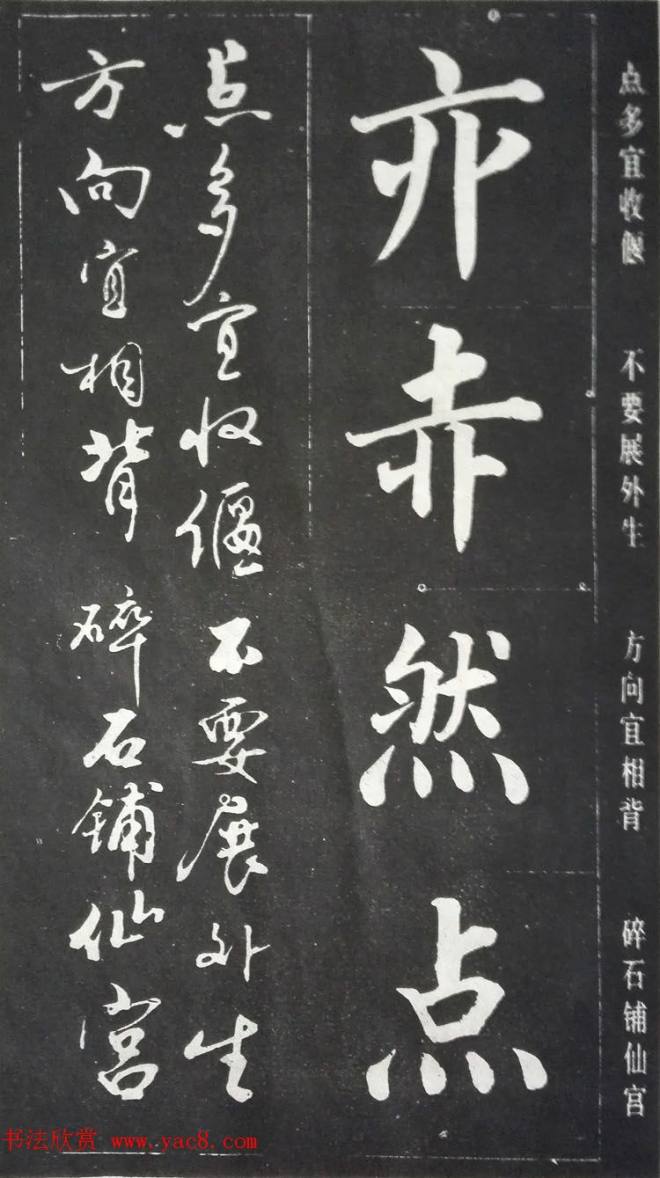 点多宜收偃 不要展外生 方向宜相背 碎石铺仙宫
亦赤然点
点多宜收偃不要展外生
方向宜相背碎石铺仙宫
书法欣赏 www.yac8.com